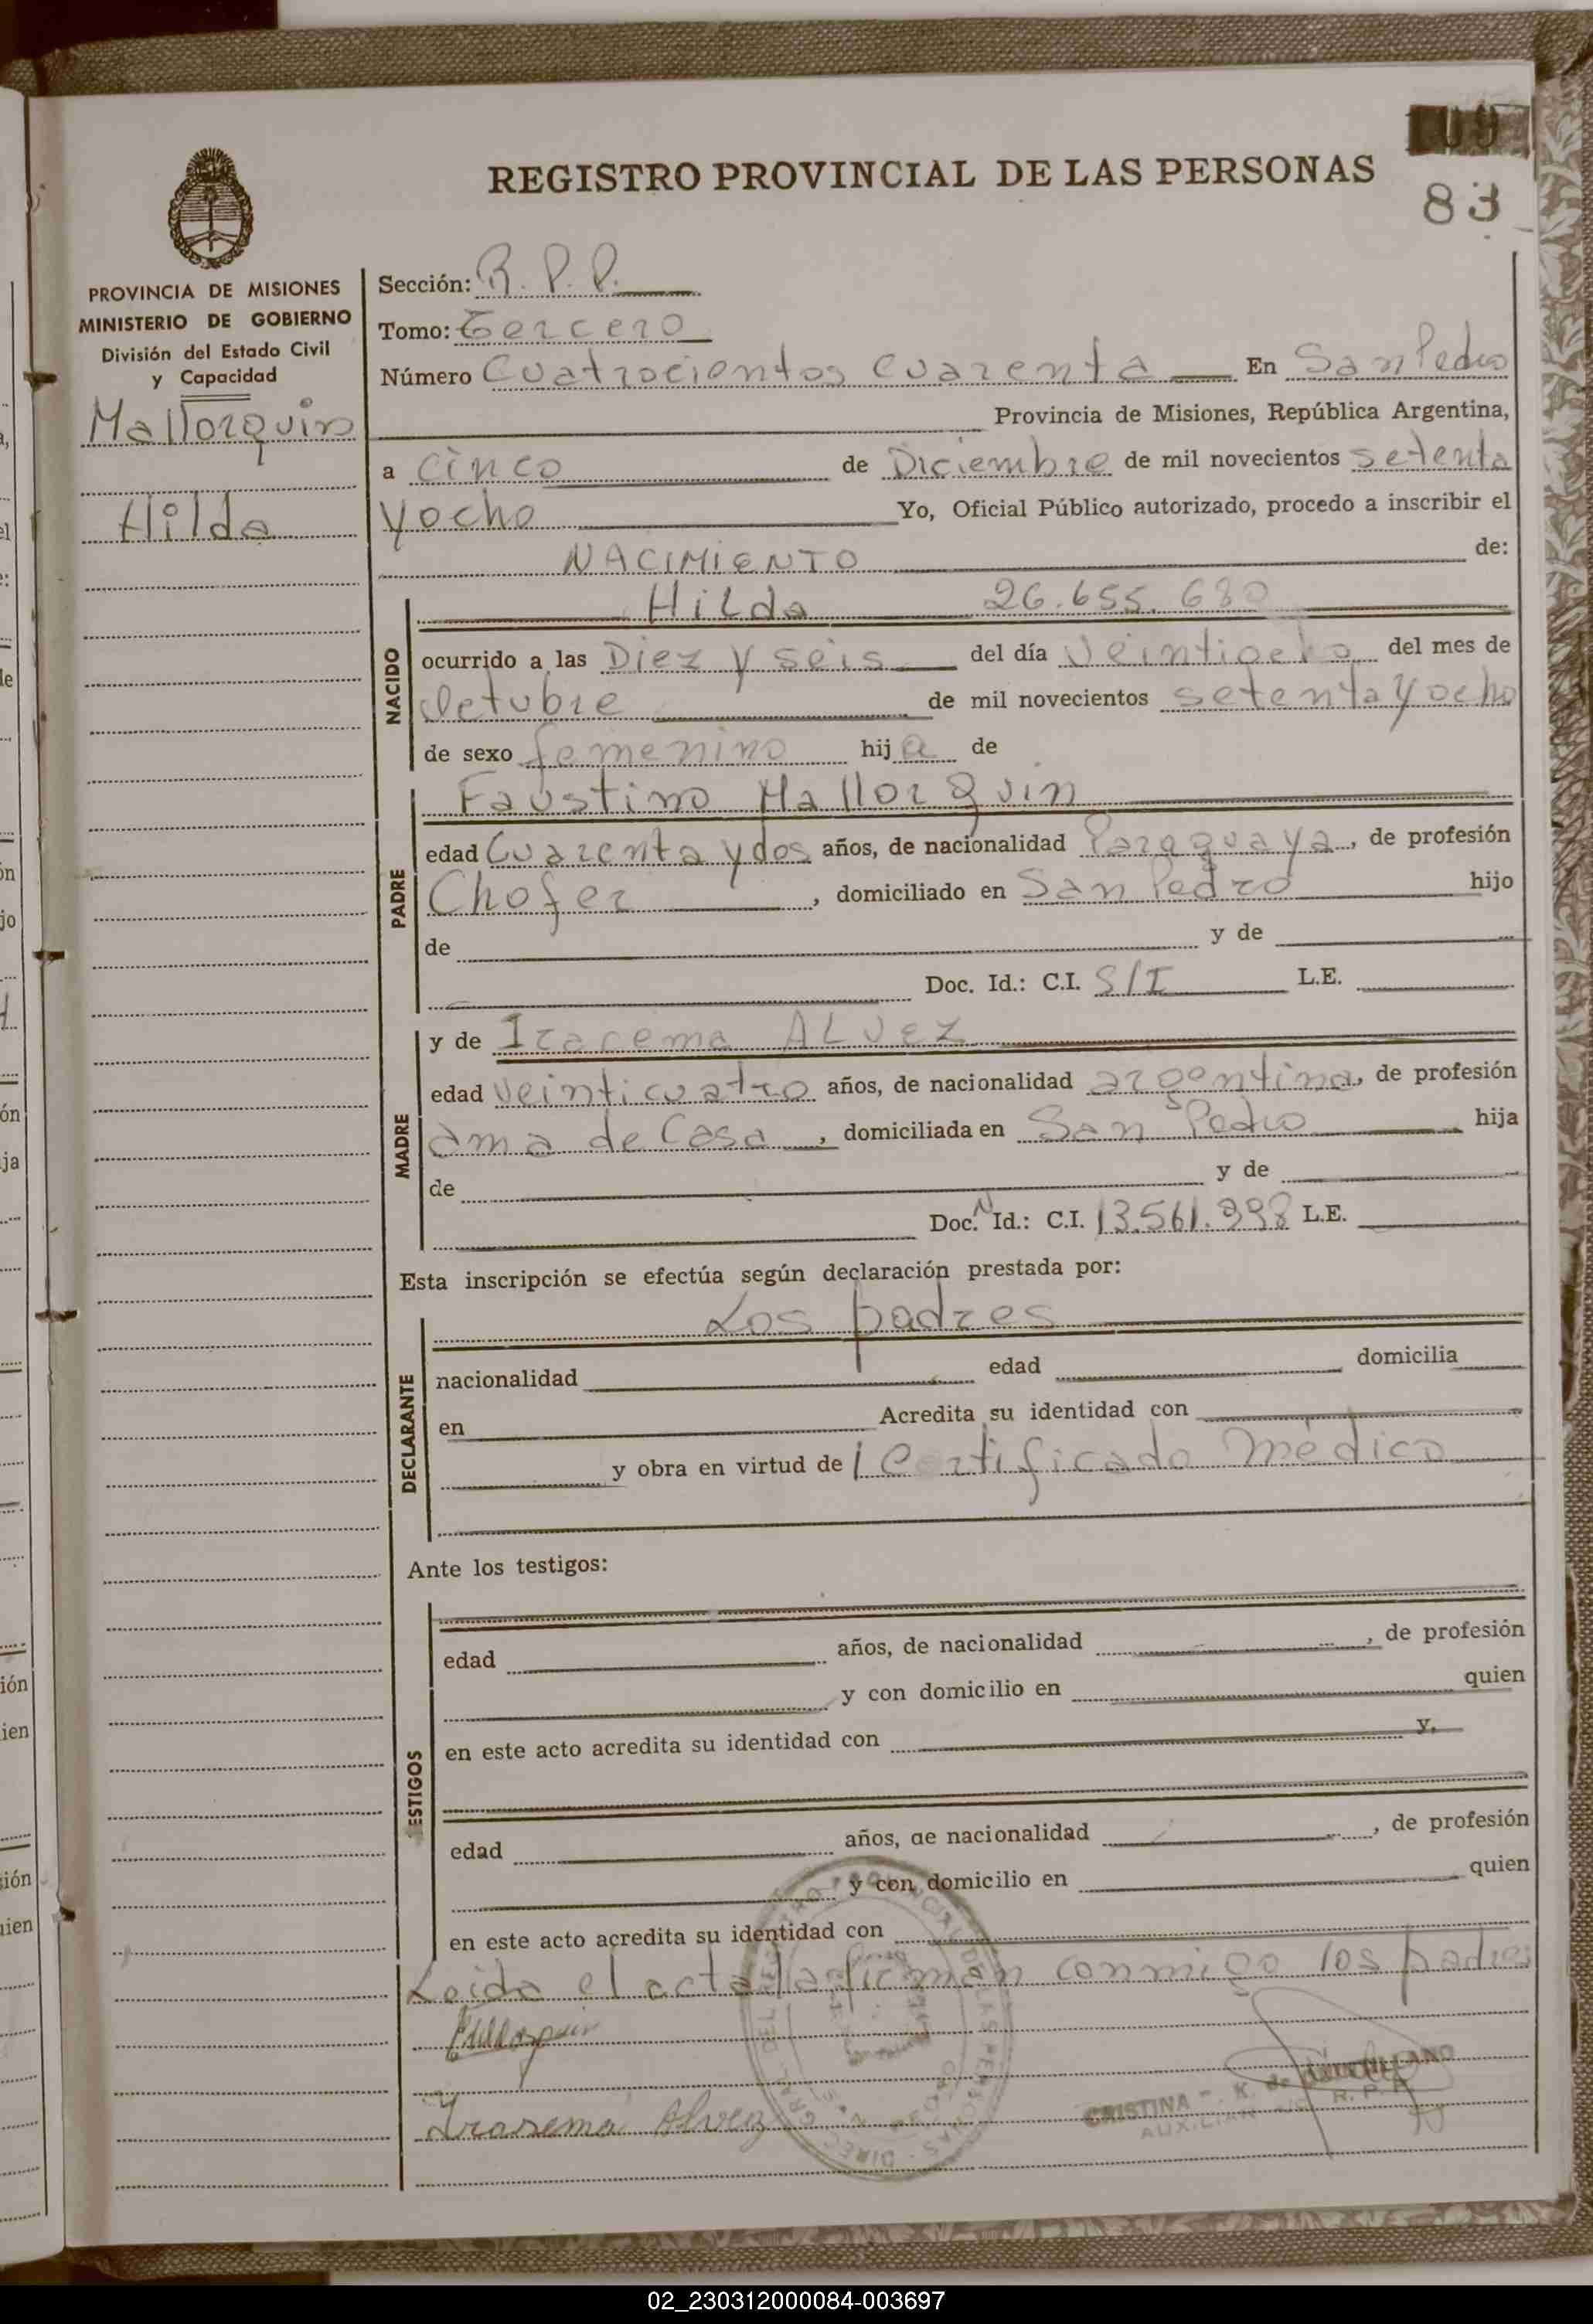 09
REGISTRO PROVINCIAL DE LAS PERSONAS
83
PROVINCIA DE MISIONES
MINISTERIO DE GOBIERNO
División del Estado Civil
y Capacidad
Mallorquin
Hilda
Sección: R. P. P.
Tomo: Tercero
Número Cuatrocientos cuarenta En San Pedro
Provincia de Misiones, República Argentina,
a cinco de Diciembre de mil novecientos setenta
y ocho Yo, Oficial Público autorizado, procedo a inscribir el
NACIMIENTO de:
NACIDO
Hilda 26.655.680
ocurrido a las Diez y seis del día veintiocho del mes de
octubre de mil novecientos setenta y ocho
de sexo femenino hija de
PADRE
Faustino Mallorquin
edad Cuarenta y dos años, de nacionalidad Paraguaya, de profesión
Chofer, domiciliado en San Pedro hijo
de y de
Doc. Id.: C.I. S/I L.E.
MADRE
y de Iracema ALVEZ
edad veinticuatro años, de nacionalidad argentina, de profesión
ama de Casa, domiciliada en San Pedro hija
de y de
Doc. N Id.: C.I. 13.561.998 L.E.
Esta inscripción se efectúa según declaración prestada por:
DECLARANTE
Los padres
nacionalidad edad domicilia
en Acredita su identidad con
y obra en virtud de / Certificado médico
Ante los testigos:
ESTIGOS
edad años, de nacionalidad , de profesión
y con domicilio en quien
en este acto acredita su identidad con y,
edad años, de nacionalidad , de profesión
y con domicilio en quien
en este acto acredita su identidad con
Leida el acta la firman conmigo los padres
Irasema Alvez
CRISTINA K. de
AUXILIAR R.P.P.
02_230312000084-003697